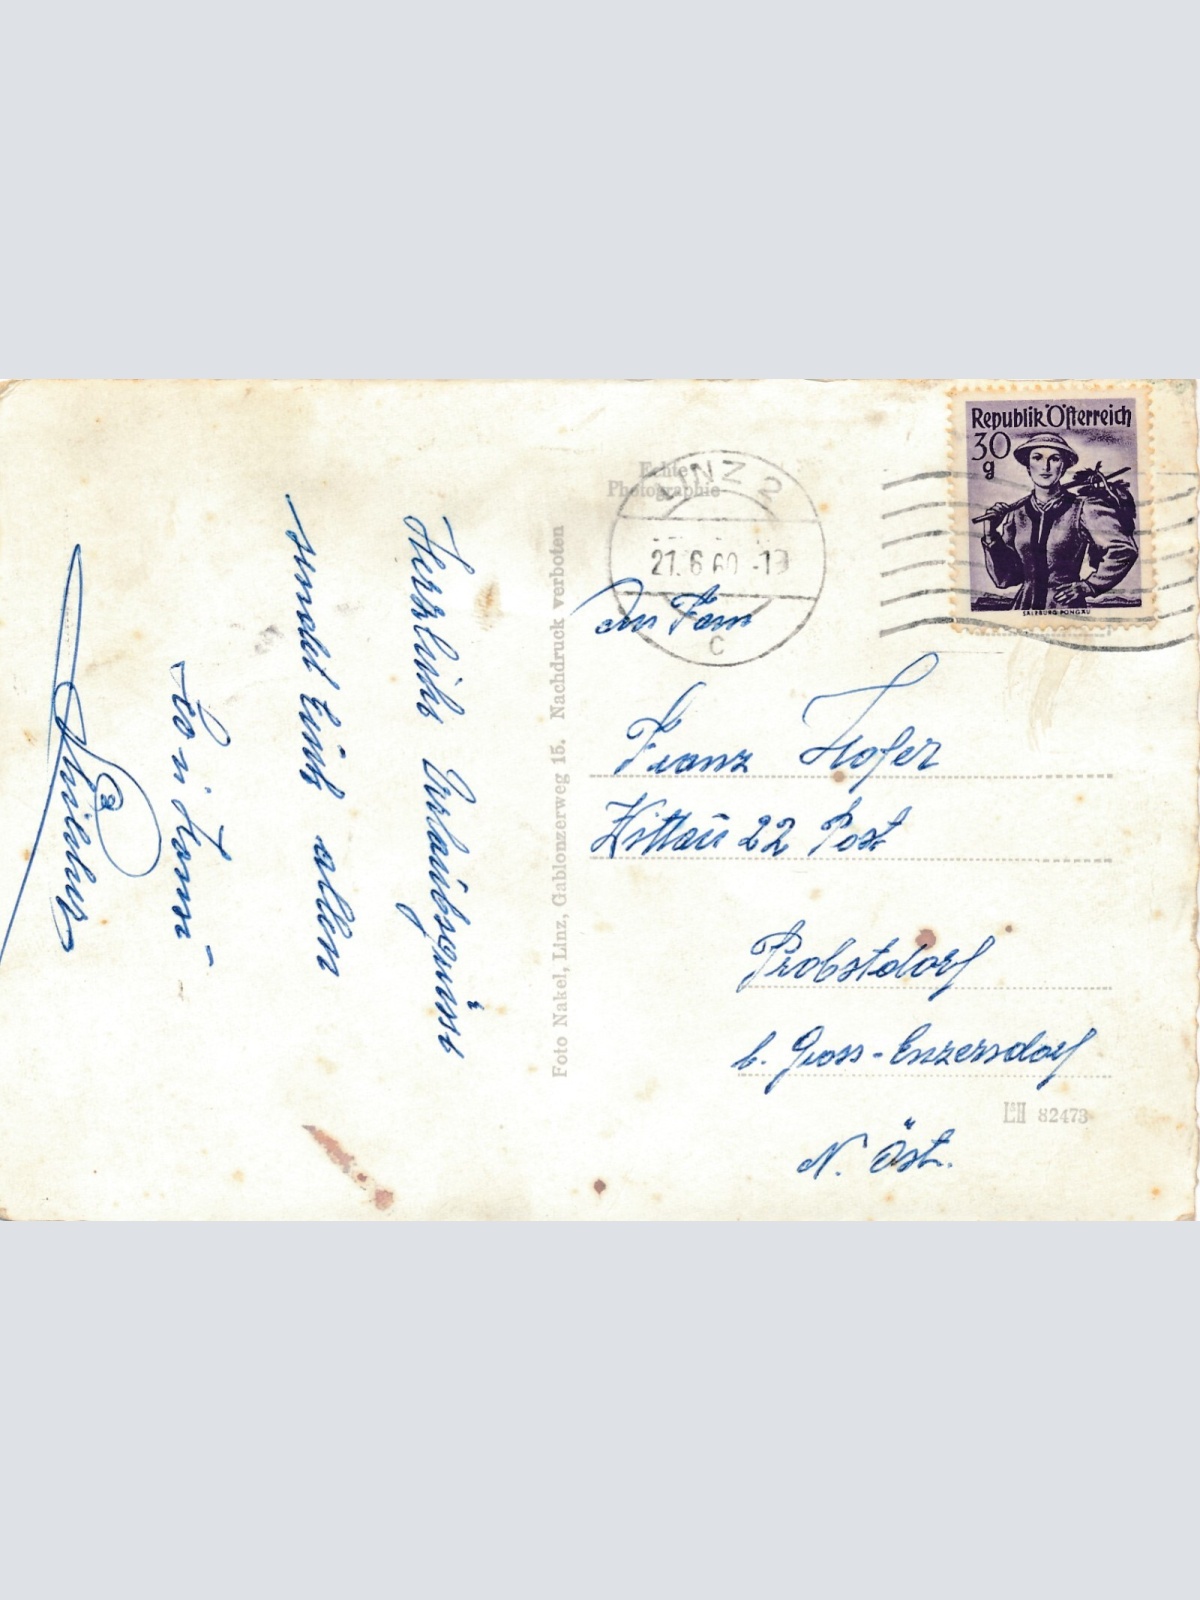 Herzliche Urlaubsgrüsse
sendet Euch allen
Republik Österreich
30
g
SALZBURG PONGAU
Echte
Photographie
LINZ 2
21.6.60-19
c
Foto Nakel, Linz, Gablonzerweg 15. Nachdruck verboten
An Fam
Franz Hofer
Wittau 22 Post
Probstdorf
b. Gross-Enzersdorf
N. Öst.
82473